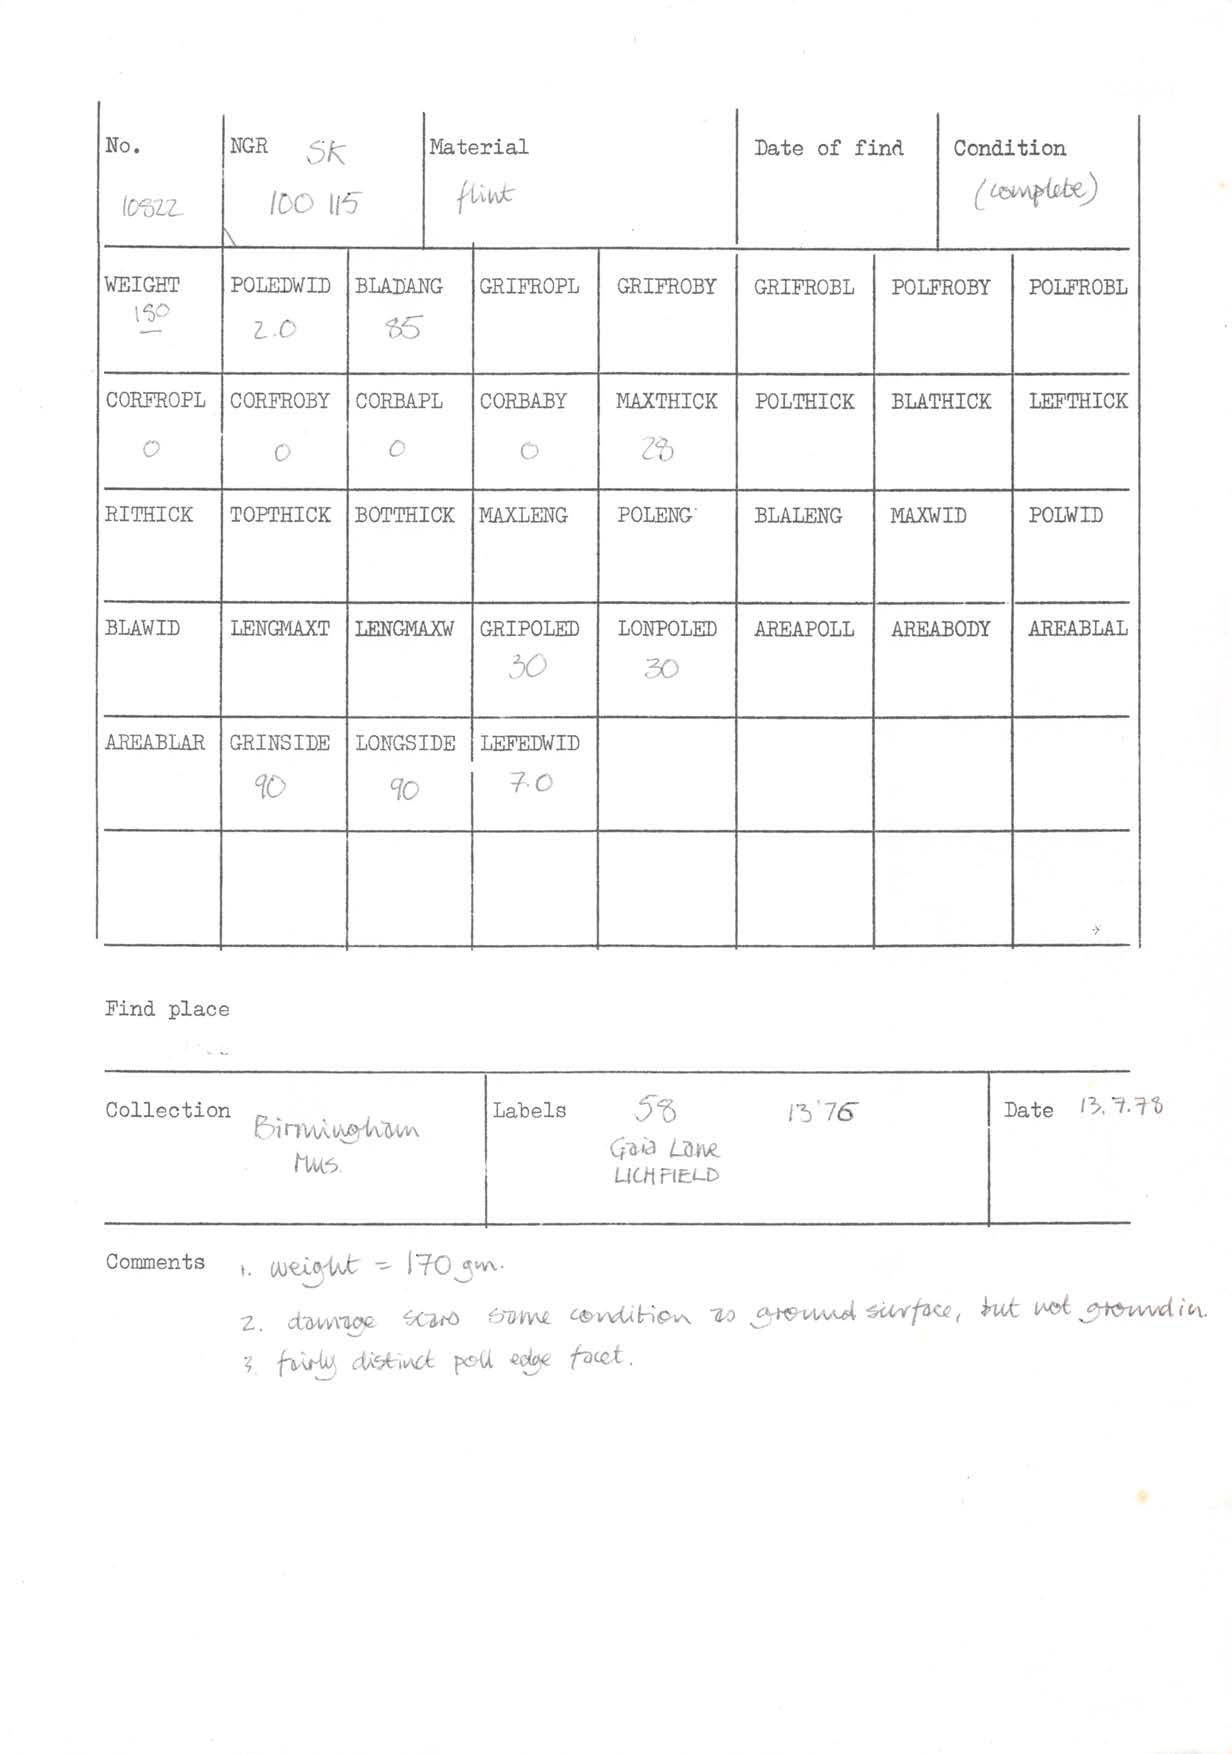 No. NGR SK Material Date of find Condition
10822 100 115 flint (complete)
WEIGHT POLEDWID BLADANG GRIFROPL GRIFROBY GRIFROBL POLFROBY POLFROBL
180 2.0 85
CORFROPL CORFROBY CORBAPL CORBABY MAXTHICK POLTHICK BLATHICK LEFTHICK
0 0 0 0 28
RITHICK TOPTHICK BOTTHICK MAXLENG POLENG BLALENG MAXWID POLWID
BLAWID LENGMAXT LENGMAXW GRIPOLED LONPOLED AREAPOLL AREABODY AREABLAL
30 30
AREABLAR GRINSIDE LONGSIDE LEFEDWID
90 90 7.0
Find place
Collection Birmingham Labels 58 13'76 Date 13.7.78
Mus. Gaia Lane
LICHFIELD
Comments 1. weight = 170 gm.
2. damage scars same condition as ground surface, but not ground in.
3. fairly distinct poll edge facet.